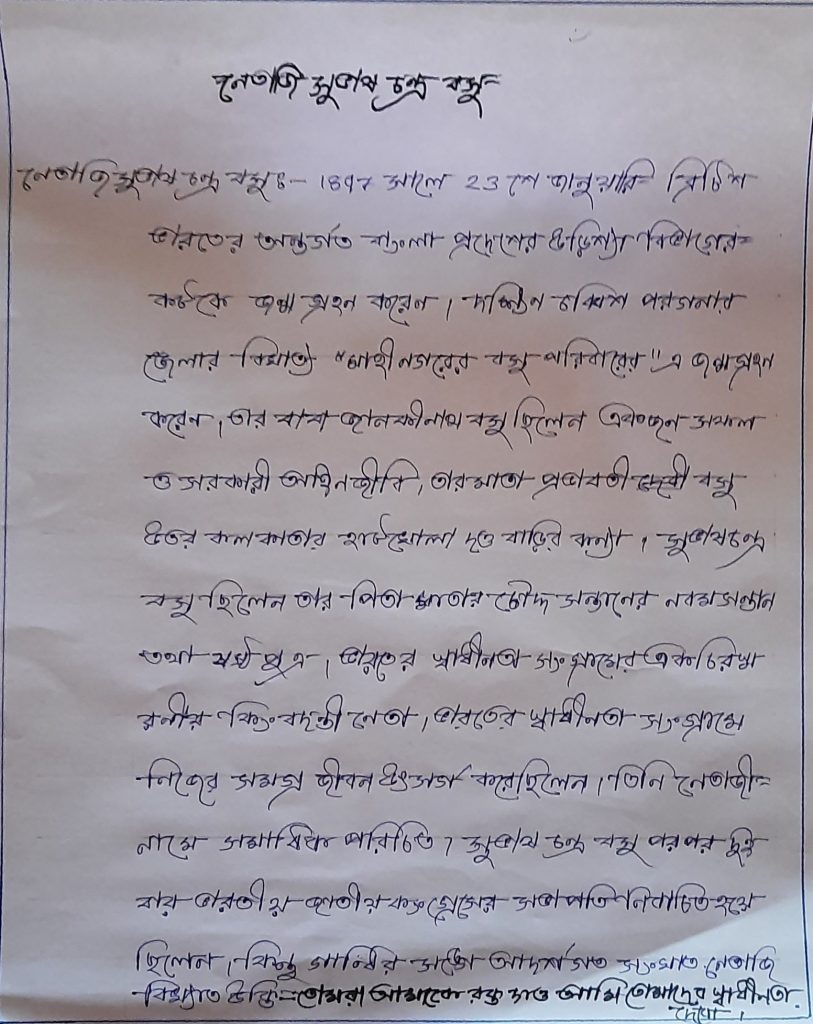 নেতাজি সুভাষ চন্দ্র বসু
নেতাজি সুভাষ চন্দ্র বসুঃ- 1897 সালে 23 শে জানুয়ারি ব্রিটিশ
ভারতের অন্তর্গত বাংলা প্রদেশের উড়িশ্যা বিভাগের
কটকে জন্ম গ্রহন করেন। দক্ষিন চব্বিশ পরগনার
জেলার বিখ্যাত "মাহীনগরের বসু পরিবারের" এ জন্মগ্রহন
করেন, তার বাবা জানকীনাথ বসু ছিলেন একজন সফল
ও সরকারী আইনজীবি, তার মাতা প্রভাবতী দেবী বসু
উত্তর কলকাতার হাটখোলা দত্ত বাড়ির কন্যা। সুভাষচন্দ্র
বসু ছিলেন তার পিতা মাতার চৌদ্দ সন্তানের নবম সন্তান
তথা ষষ্ঠ পুত্র, ভারতের স্বাধীনতা সংগ্রামের এক চিরস্ম
রনীয় কিংবদন্তী নেতা, ভারতের স্বাধীনতা সংগ্রামে
নিজের সমগ্র জীবন উৎসর্গ করেছিলেন। তিনি নেতাজী
নামে সমাধিক পরিচিত, সুভাষ চন্দ্র বসু পরপর দুই
বার ভারতীয় জাতীয় কংগ্রেসের সভাপতি নির্বাচিত হয়ে
ছিলেন, কিন্তু গান্ধির সঙ্গে আদর্শগত সংঘাত, নেতাজি
বিখ্যাত উক্তি- তোমরা আমাকে রক্ত দাও আমি তোমাদের স্বাধীনতা
দেবো।